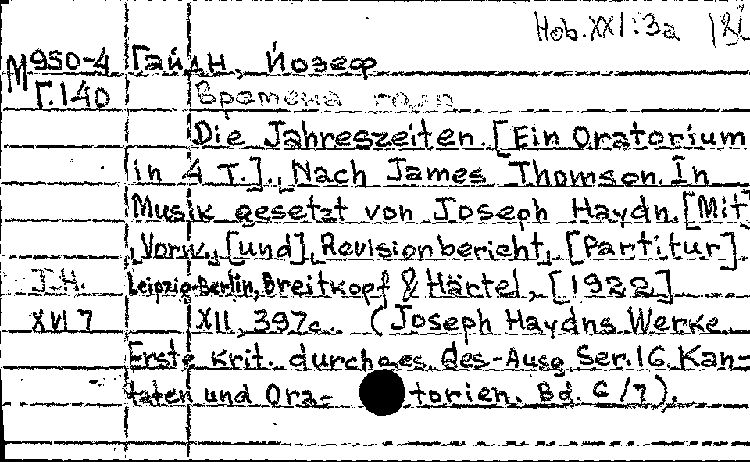 Hob.XXI:3a
М 950-4 Гайдн, Йозеф
Г.140 Времена года
Die Jahreszeiten. [Ein Oratorium
in 4 T.]. Nach James Thomson. In
Musik gesetzt von Joseph Haydn. [Mit]
Vorw., [und] Revisionbericht, [Partitur].
J.H. Leipzig-Berlin, Breitkopf & Härtel, [1922]
XVI 7 XII, 397c. (Joseph Haydns Werke
Erste krit. durchges. des-Ausg Ser.16 Kan-
taten und Ora- torien. Bd. 6/7).